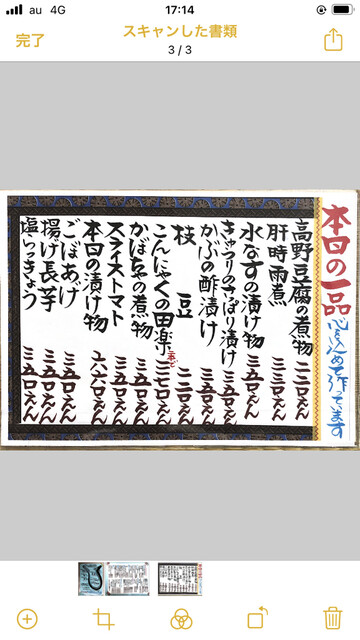 au 4G 17:14
完了
スキャンした書類
3 / 3
本日の一品
心をこめて作っています
高野豆腐の煮物 二二〇えん
肝時雨煮 三三〇えん
水なすの漬け物 三五〇えん
きゅうりのさっぱり漬け 三五〇えん
かぶの酢漬け 三五〇えん
枝豆 二二〇えん
こんにゃくの田楽
かぼちゃの煮物 三五〇えん
スライストマト 三五〇えん
本日の漬け物
ごぼあげ 三五〇えん
揚げ長芋 三五〇えん
塩らっきょう 三五〇えん